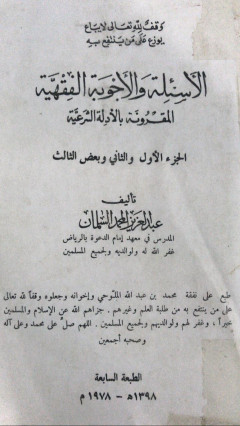 وقف لله تعالى لا يباع
يوزع على من ينتفع به
الأسئلة والأجوبة الفقهية
المقرونة بالأدلة الشرعية
الجزء الأول والثاني وبعض الثالث
تأليف
عبد العزيز المحمد السلمان
المدرس في معهد إمام الدعوة بالرياض
غفر الله له ولوالديه ولجميع المسلمين
طبع على نفقة محمد بن عبد الله الملوحي وإخوانه وجعلوه وقفاً لله تعالى
على من ينتفع به من طلبة العلم وغيرهم . جزاهم الله عن الإسلام والمسلمين
خيراً ، وغفر لهم ولوالديهم ولجميع المسلمين . اللهم صل على محمد وعلى آله
وصحبه أجمعين
الطبعة السابعة
١٣٩٨هـ - ١٩٧٨ م